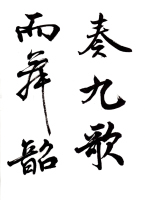 奏九歌
而舞韶